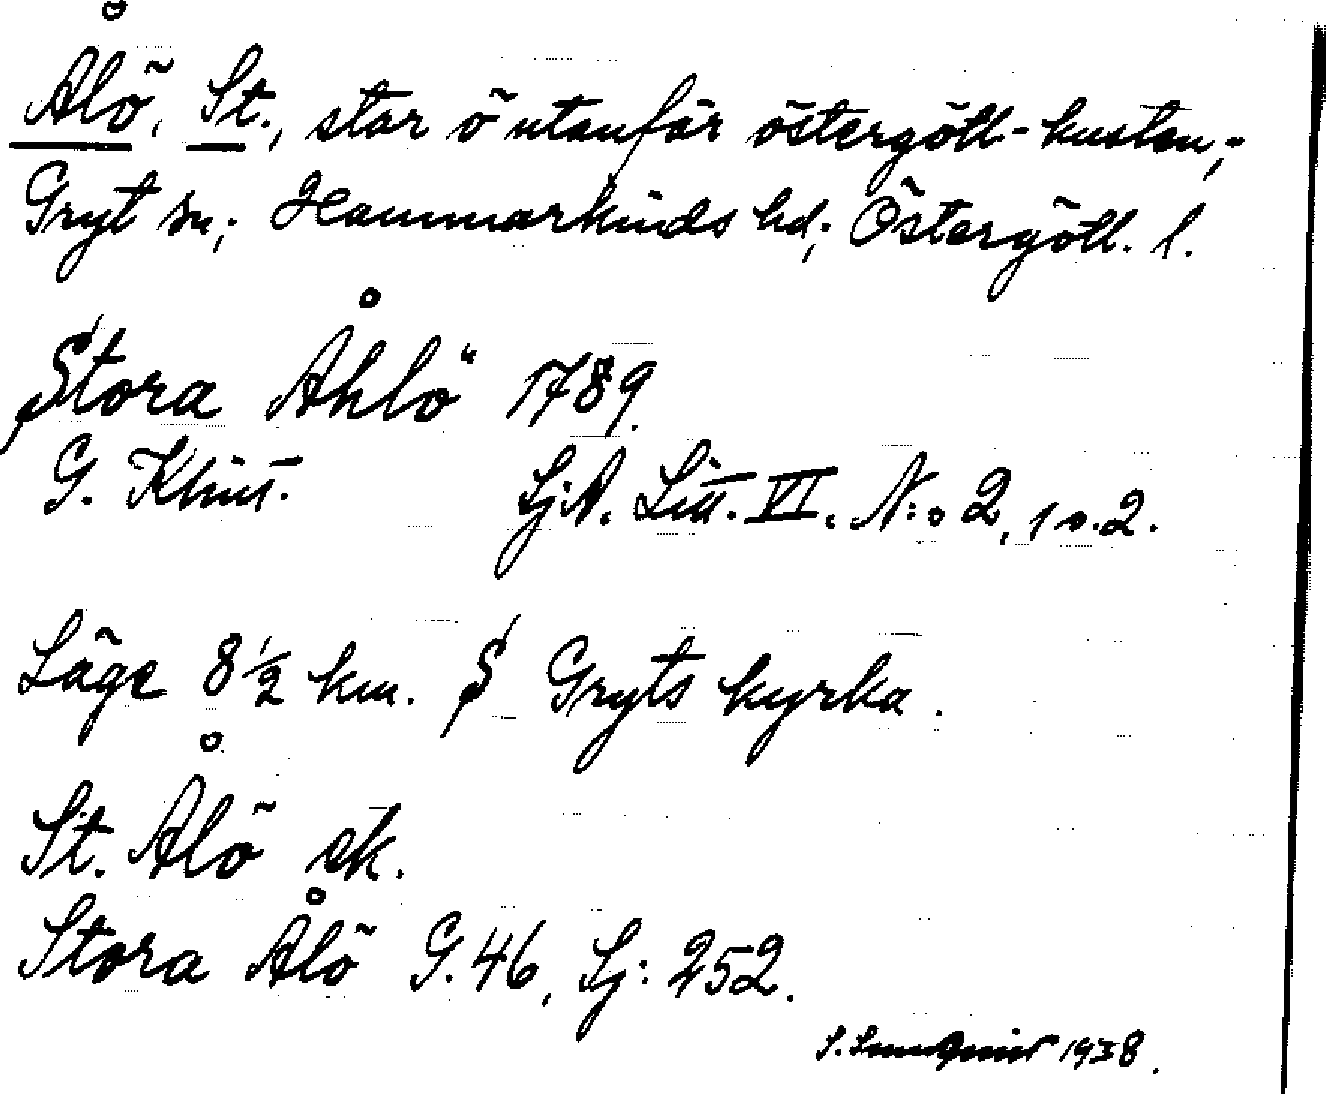 Ålö, St., stor ö utanför östergötl-kusten;
Gryt sn; Hammarkinds hd; Östergötl. l.
Stora Åhlö 1789.
G. Klint. Sj.A. Litt. VI. N:o 2, 1 o. 2.
Läge 8 1/2 km. S Gryts kyrka.
St. Ålö ek.
Stora Ålö G. 46, Sj: 252.
S. 1938.